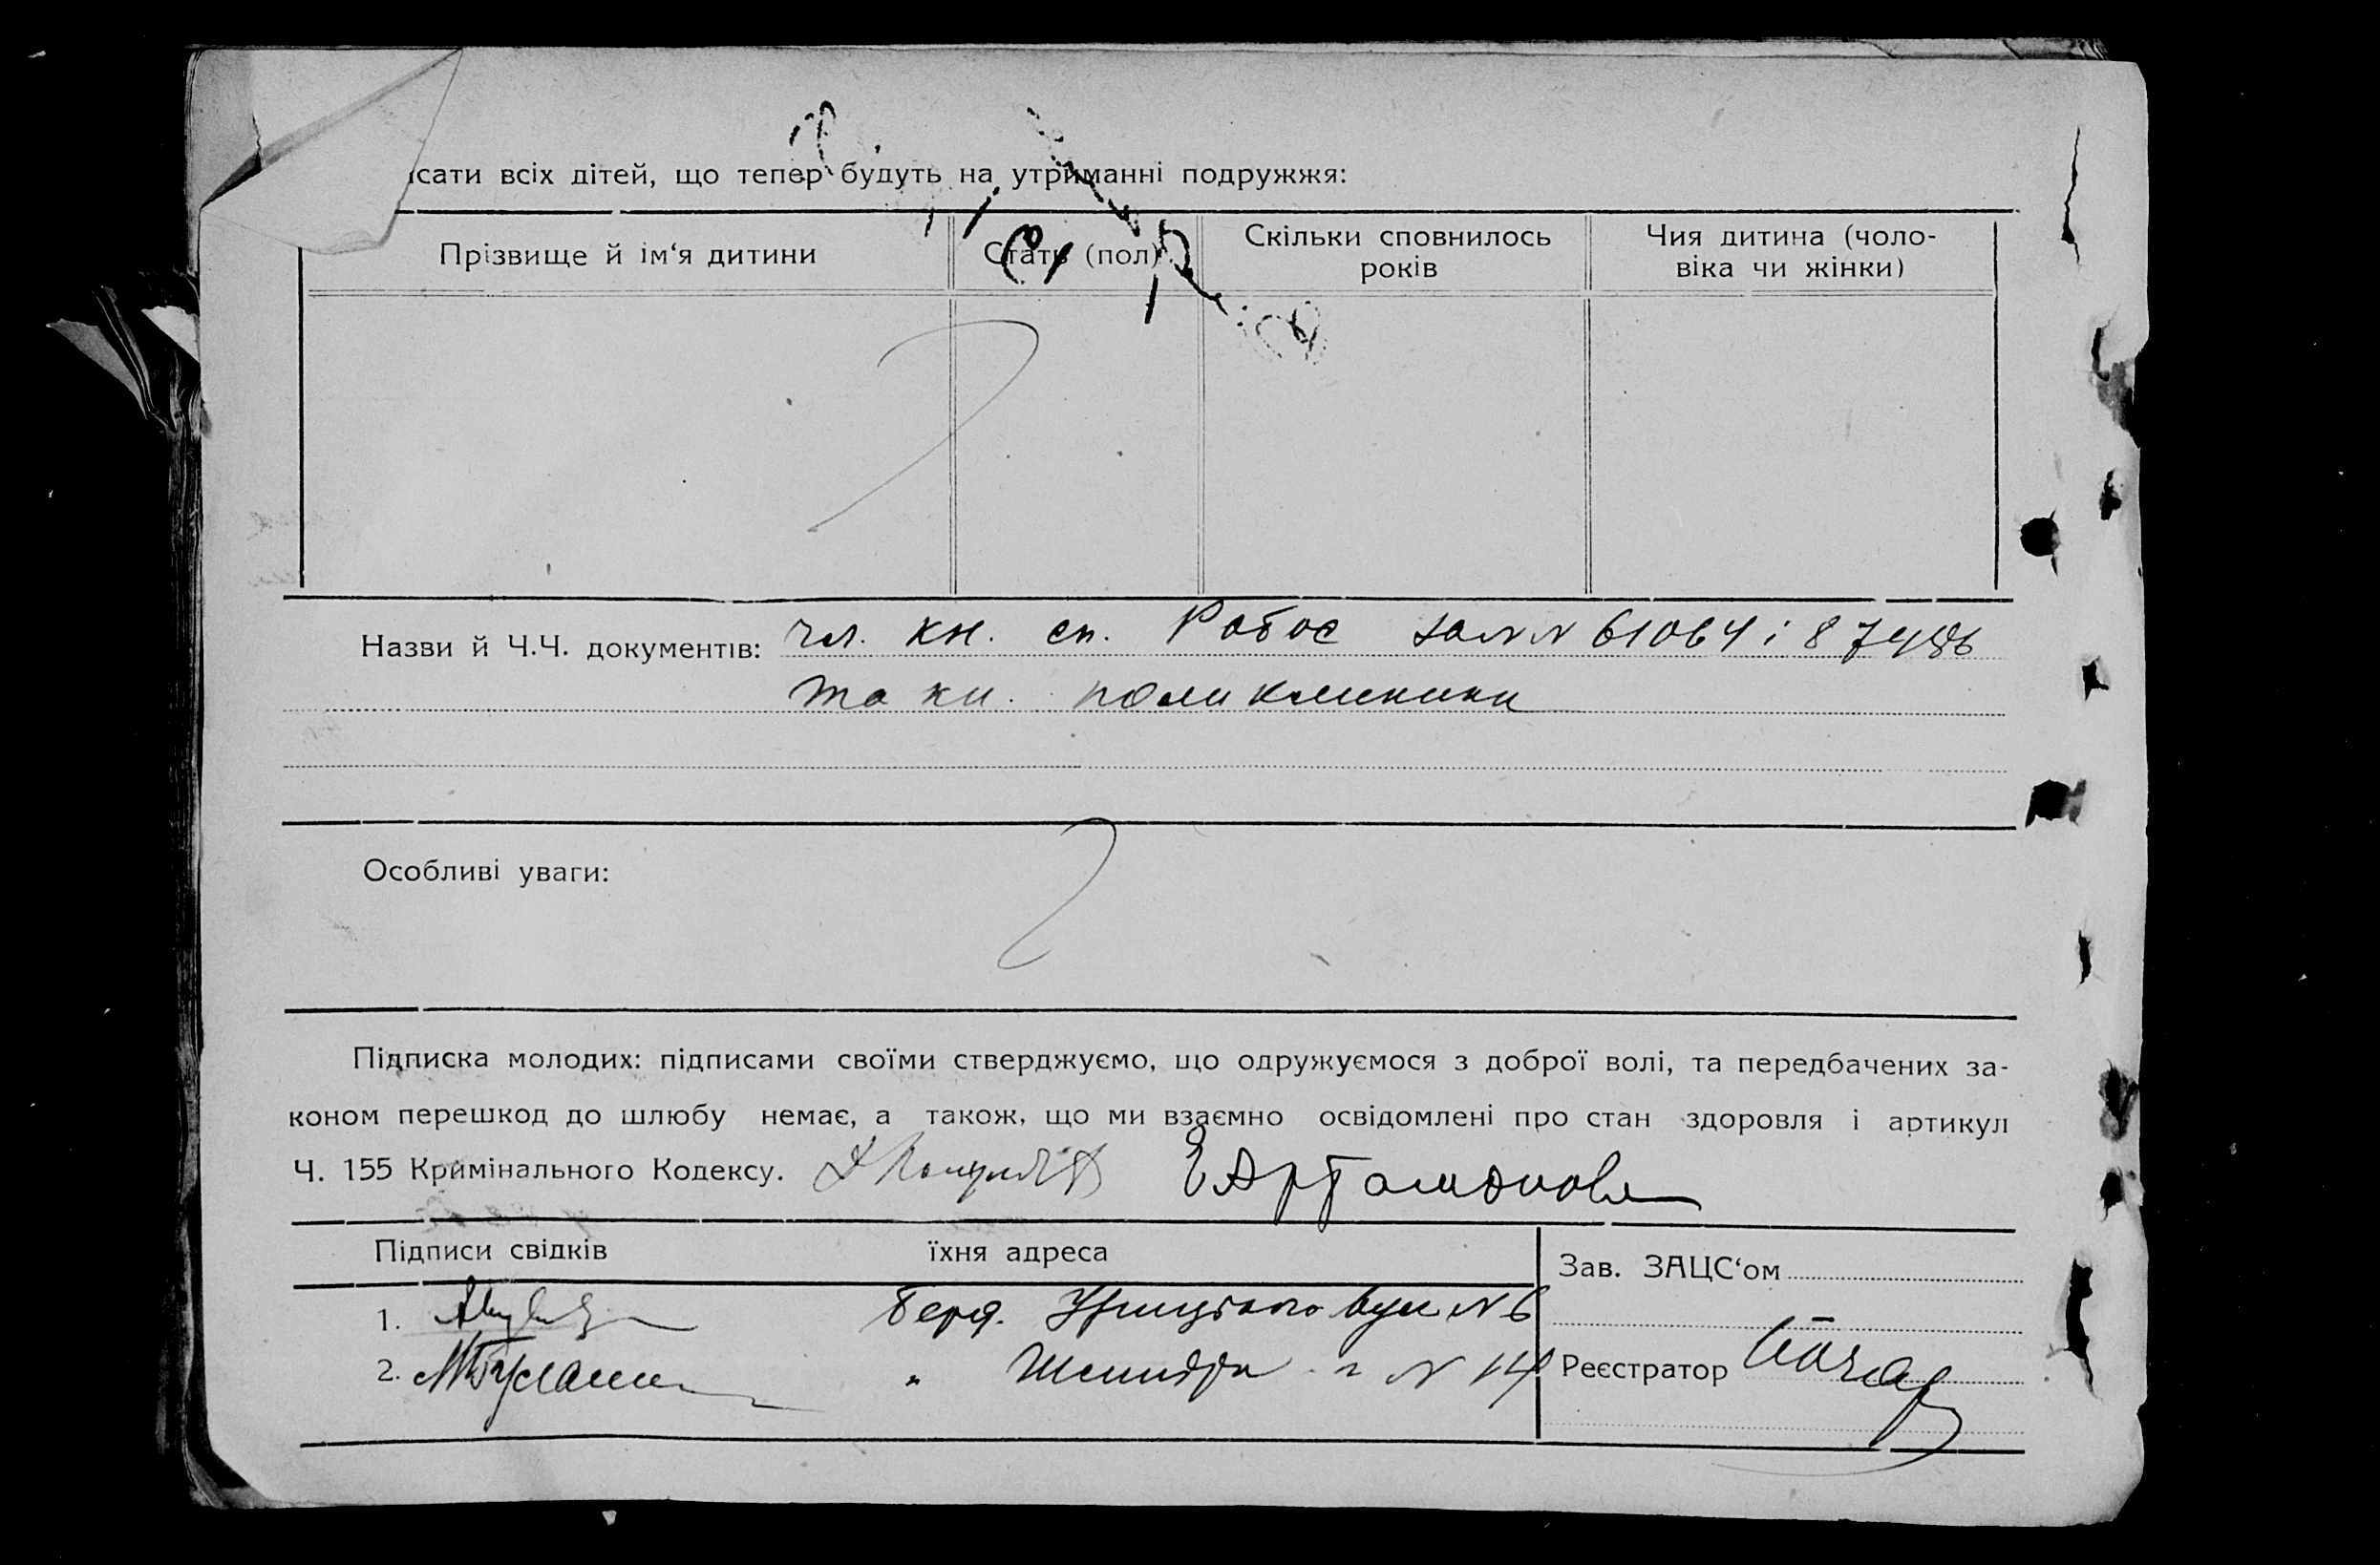 сати всіх дітей, що тепер будуть на утриманні подружжя:
Прізвище й ім‘я дитини
Стать (пол)
Скільки сповнилось
років
Чия дитина (чоло-
віка чи жінки)
Назви й Ч.Ч. документів: чл. кн. сп. Робос за NN 61064 і
та кн. поликлиники
Особливі уваги:
Підписка молодих: підписами своїми стверджуємо, що одружуємося з доброї волі, та передбачених за-
коном перешкод до шлюбу немає, а також, що ми взаємно освідомлені про стан здоровля і артикул
Ч. 155 Кримінального Кодексу. Е Артамонова
Підписи свідків їхня адреса
Зав. ЗАЦС‘ом
1. Берд. Урицького вул N 6
2. " Шмидта " N 14
Реєстратор